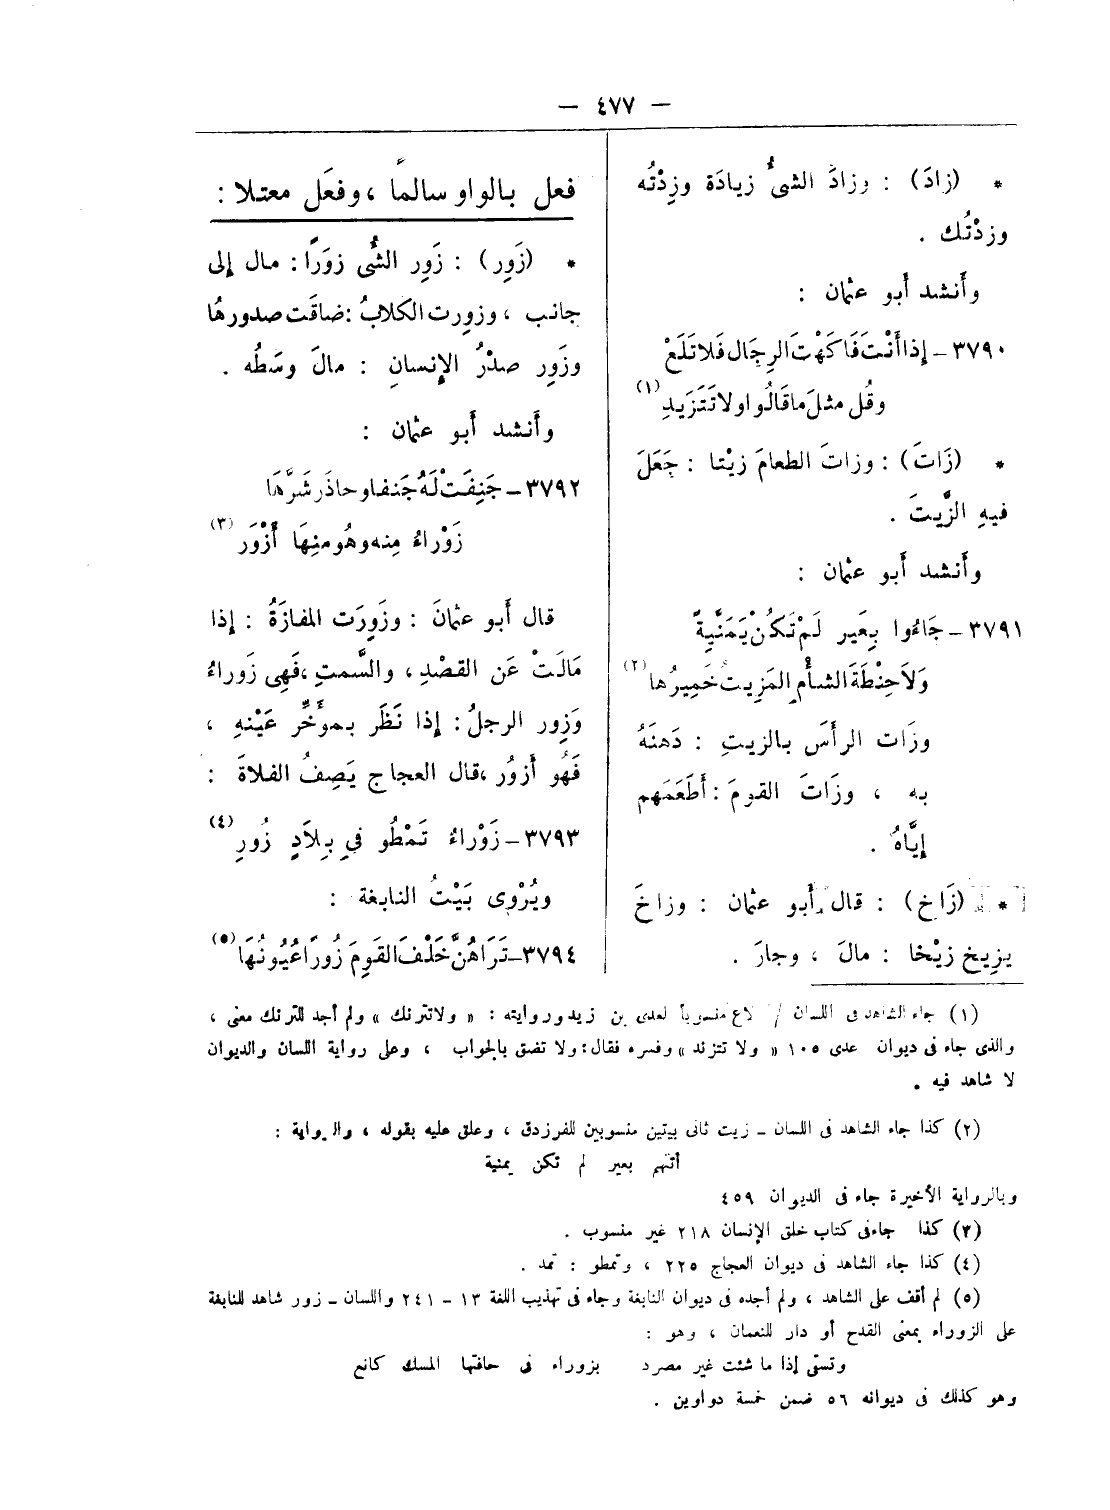 — ٤٧٧ —
* (زادَ) : وزادَ الشىُّ زيادَة وزِدْتُه
وزدْتُك .
وأَنشد أَبو عثمان :
٣٧٩٠ – إذا أَنْتَ فَاكَهْتَ الرِجَال فَلا تَلَعْ
وقُل مثلَ ما قَالُوا ولا تَتَزَيدِ (١)
* (زَاتَ) : وزاتَ الطعامَ زيْتا : جَعَلَ
فيهِ الزَّيتَ .
وأَنشد أَبو عثمان :
٣٧٩١ – جَاءُوا بِعَير لَمْ تَكُنْ يَمَنيَّةً
وَلاَ حِنْطَةَ الشأْمِ المَزِيتُ خَمِيرُها (٢)
وزَات الرأسَ بالزيتِ : دَهنَهُ
به ، وزَاتَ القومَ : أَطَعَمَهم
إيَّاهُ .
* (زَاخ) : قال أَبو عثمان : وزاخَ
يزِيخ زيْخا : مالَ ، وجارَ .
فعل بالواو سالماً ، وفعَل معتلا :
* (زَوِر) : زَوِر الشُّى زورًا : مال إلى
جانب ، وزوِرت الكلابُ : ضاقَت صدورهُا
وزَوِر صدْرُ الإنسانِ : مالَ وسَطُه .
وأَنشد أَبو عثمان :
٣٧٩٢ – جَنِفَتْ لَهُ جَنفا وحاذَر شَرَّهَا
زَوْراءُ مِنه وهُو منِهَا أَزْوَر (٣)
قال أَبو عثمانَ : وزَوِرَت المفازَةُ : إذا
مَالَتْ عَن القصْدِ ، والسَّمتِ ، فَهِى زَوراءُ
وَزوِر الرجلُ : إذا نَظَر بموَخَّرِ عَيْنهِ ،
فَهُو أَزوُر ، قال العجاج يَصِفُ الفلاةَ :
٣٧٩٣ – زَوْراءُ تَمْطُو فى بِلاَدٍ زُورِ (٤)
ويُرْوى بَيْتُ النابغة :
٣٧٩٤ – تَرَاهُنَّ خَلْفَ القَومَ زُوراً عُيُونُهَا (٥)
(١) جاء الشاهد فى اللسان / لاع منسوباً لعدى بن زيد وروايته : « ولاترنك » ولم أجد للترنك معنى ،
والذى جاء فى ديوان عدى ١٠٥ « ولا تتزند » وفسره فقال : ولا تضق بالجواب ، وعلى رواية اللسان والديوان
لا شاهد فيه .
(٢) كذا جاء الشاهد فى اللسان – زيت ثانى بيتين منسوبين للفرزدق ، وعلق عليه بقوله ، والرواية :
أتتهم بعير لم تكن يمنية
وبالرواية الأخيرة جاء فى الديوان ٤٥٩
(٣) كذا جاء فى كتاب خلق الإنسان ٢١٨ غير منسوب .
(٤) كذا جاء الشاهد فى ديوان العجاج ٢٢٥ ، وتمطو : تمد .
(٥) لم أقف على الشاهد ، ولم أجده فى ديوان النابغة وجاء فى تهذيب اللغة ١٣ – ٢٤١ واللسان – زور شاهد للنابغة
على الزوراء بمعنى القدح أو دار للنعمان ، وهو :
وتسقى إذا ما شئت غير مصرد بزوراء فى حافتها المسك كانع
وهو كذلك فى ديوانه ٥٦ ضمن خمسة دواوين .